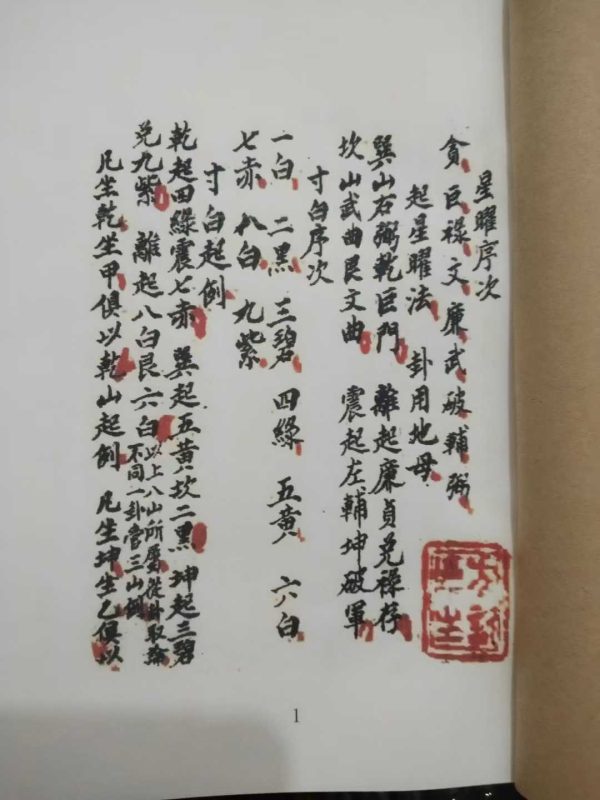 星曜序次
貪巨祿文廉武破輔弼
起星曜法 卦用地母
巽山右弼乾巨門 離起廉貞兌祿存
坎山武曲艮文曲 震起左輔坤破軍
寸白序次
一白 二黑 三碧 四綠 五黃 六白
七赤 八白 九紫
寸白起例
乾起四綠震七赤 巽起五黃坎二黑 坤起三碧
兌九紫 離起八白艮六白 以上八山所屬從卦取論
不同一卦管三山例
凡坐乾坐甲俱以乾山起例 凡坐坤坐乙俱以
1